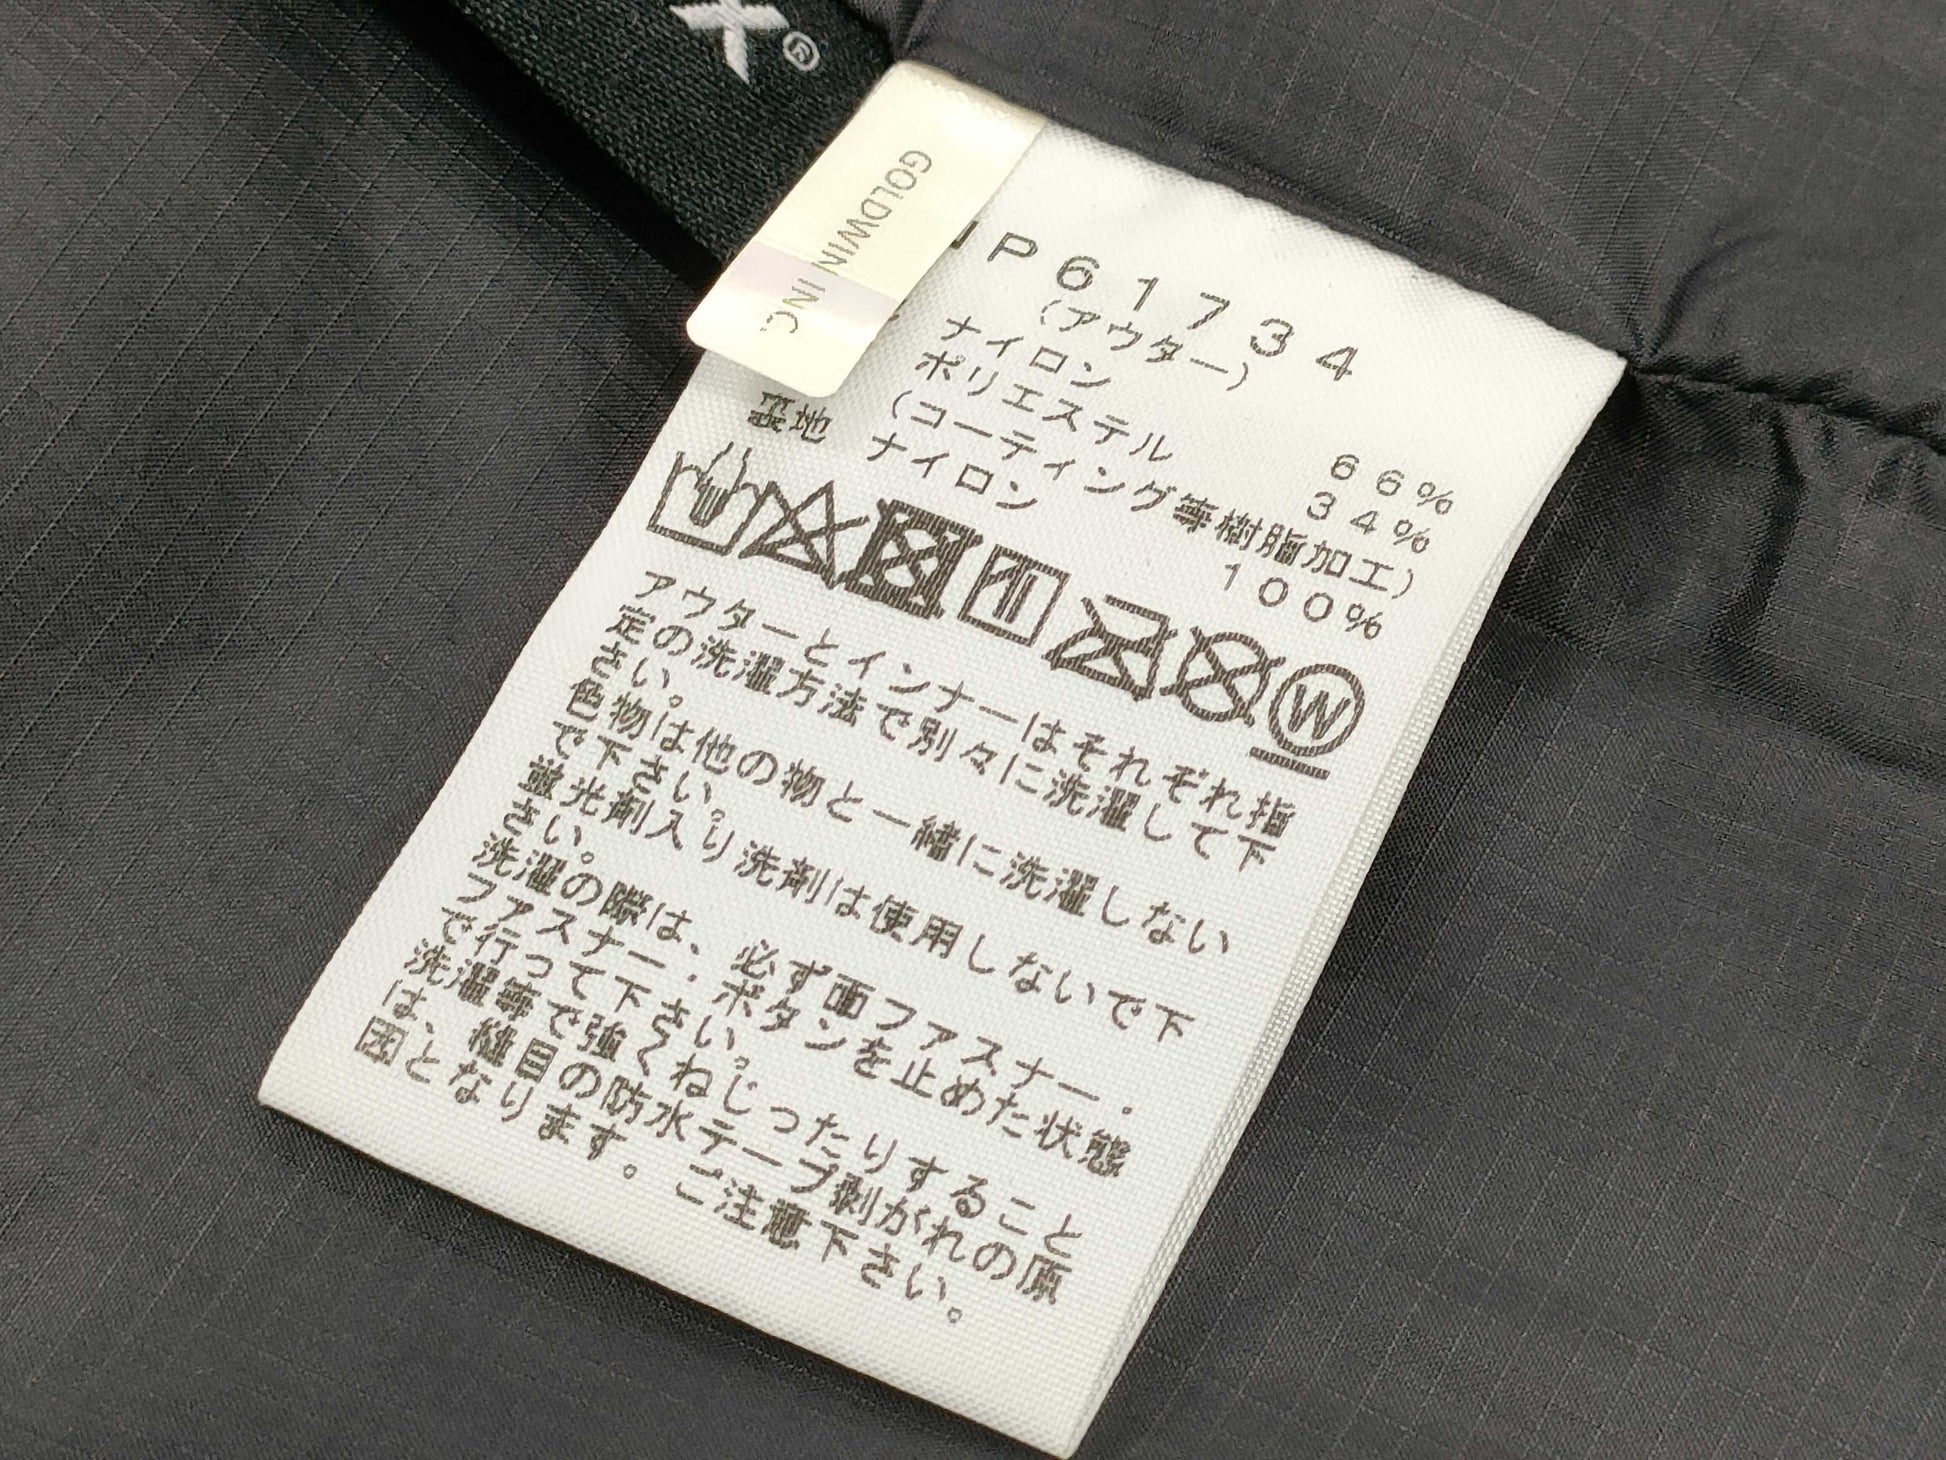 X®
GOLDWIN INC.
NP61734
(アウター)
ナイロン 66%
ポリエステル 34%
(コーティング等樹脂加工)
裏地 ナイロン 100%
W
アウターとインナーはそれぞれ指
定の洗濯方法で別々に洗濯して下
さい。
色物は他の物と一緒に洗濯しない
で下さい。
蛍光剤入り洗剤は使用しないで下
さい。
洗濯の際は、必ず面ファスナー・
ファスナー・ボタンを止めた状態
で行って下さい。
洗濯等で強くねじったりすること
は、縫目の防水テープ剥がれの原
因となります。ご注意下さい。